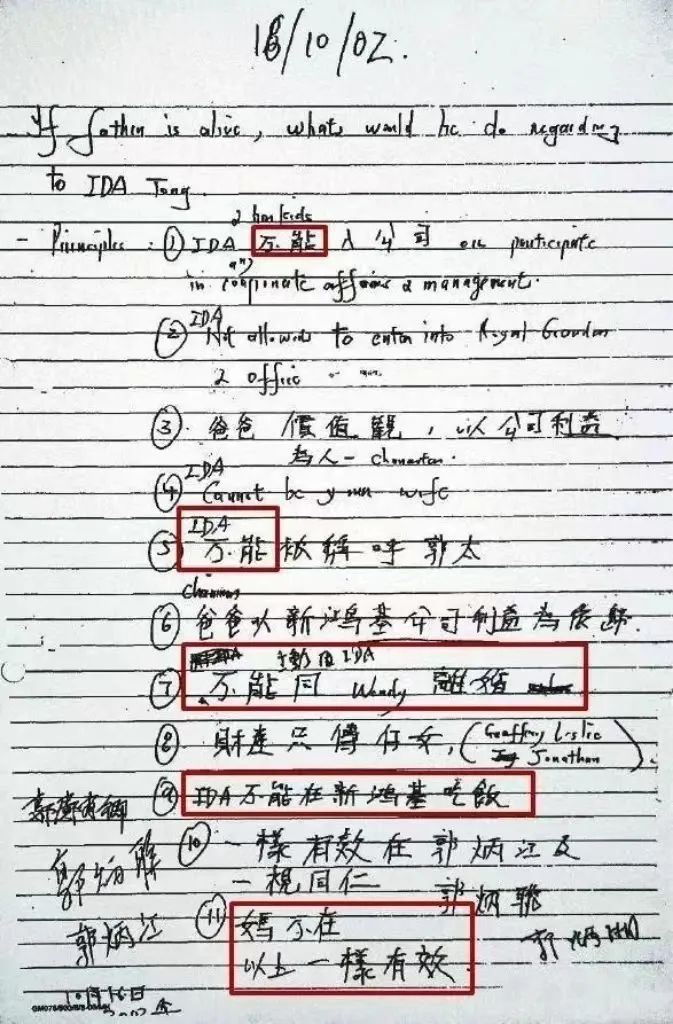 18/10/02.
If father is alive, what would he do regarding
to IDA Tong.
2 her kids
- Principles : ① IDA 不能 入公司 or participate
any
in corporate affairs 2 management.
IDA
② Not allowed to enter into Royal Garden
2 office
③ 爸爸 價值觀, 以公司利益
為人 - character.
IDA
④ Cannot be your wife
IDA
⑤ 不能被稱呼郭太
Chairman
⑥ 爸爸以新鴻基公司利益為依歸.
IDA
⑦ 不能同 Wendy 離婚
⑧ 財產只傳仔女, (Geoffrey Leslie
Jonathan)
⑨ IDA不能在新鴻基吃飯
⑩ 一樣有效在郭炳江及
一視同仁
郭炳聯
郭炳江
⑪ 媽不在
以上一樣有效
10月16日
2002年